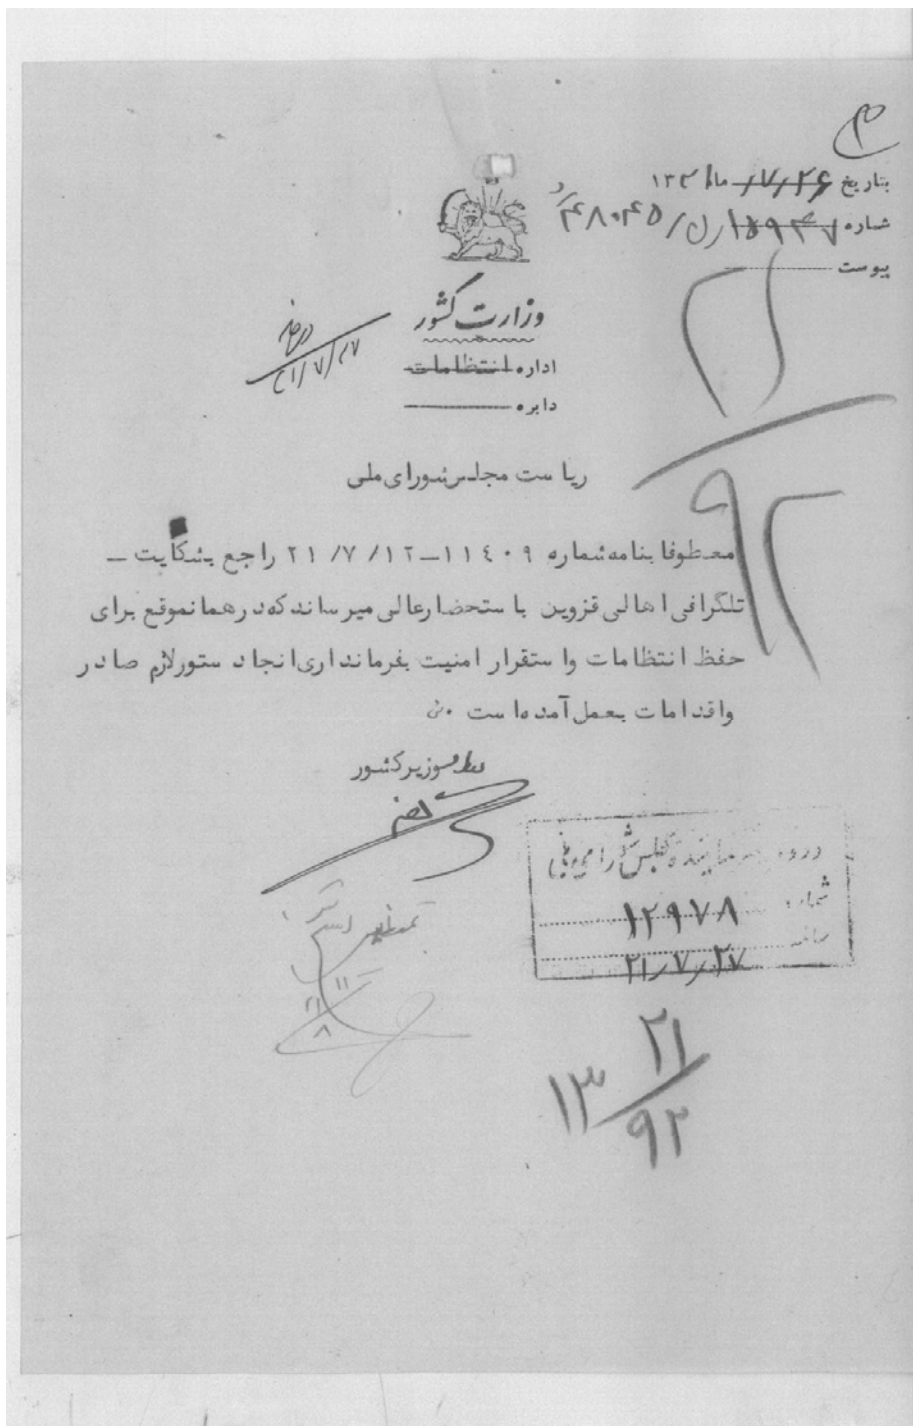 بتاریخ ۲۶/۷/ ماه ۱۳۲۱
شماره ۱۵۹۴۷/ن/۴۸۰۴۵
پیوست
وزارت کشور
اداره انتظامات
دایره
۲۱/۷/۲۷
۲۱
۹۲
ریاست مجلس شورای ملی
معطوفا بنامه شماره ۱۱۴۰۹-۲۱/۷/۱۲ راجع بشکایت -
تلگرافی اهالی قزوین باستحضار عالی میرساند که در همان موقع برای
حفظ انتظامات و استقرار امنیت بفرمانداری انجا دستور لازم صادر
و اقدامات بعمل آمده است
وزیر کشور
مجلس شورای ملی
شماره ۱۲۹۷۸
۲۱/۷/۲۷
۲۱
۱۳
۹۲